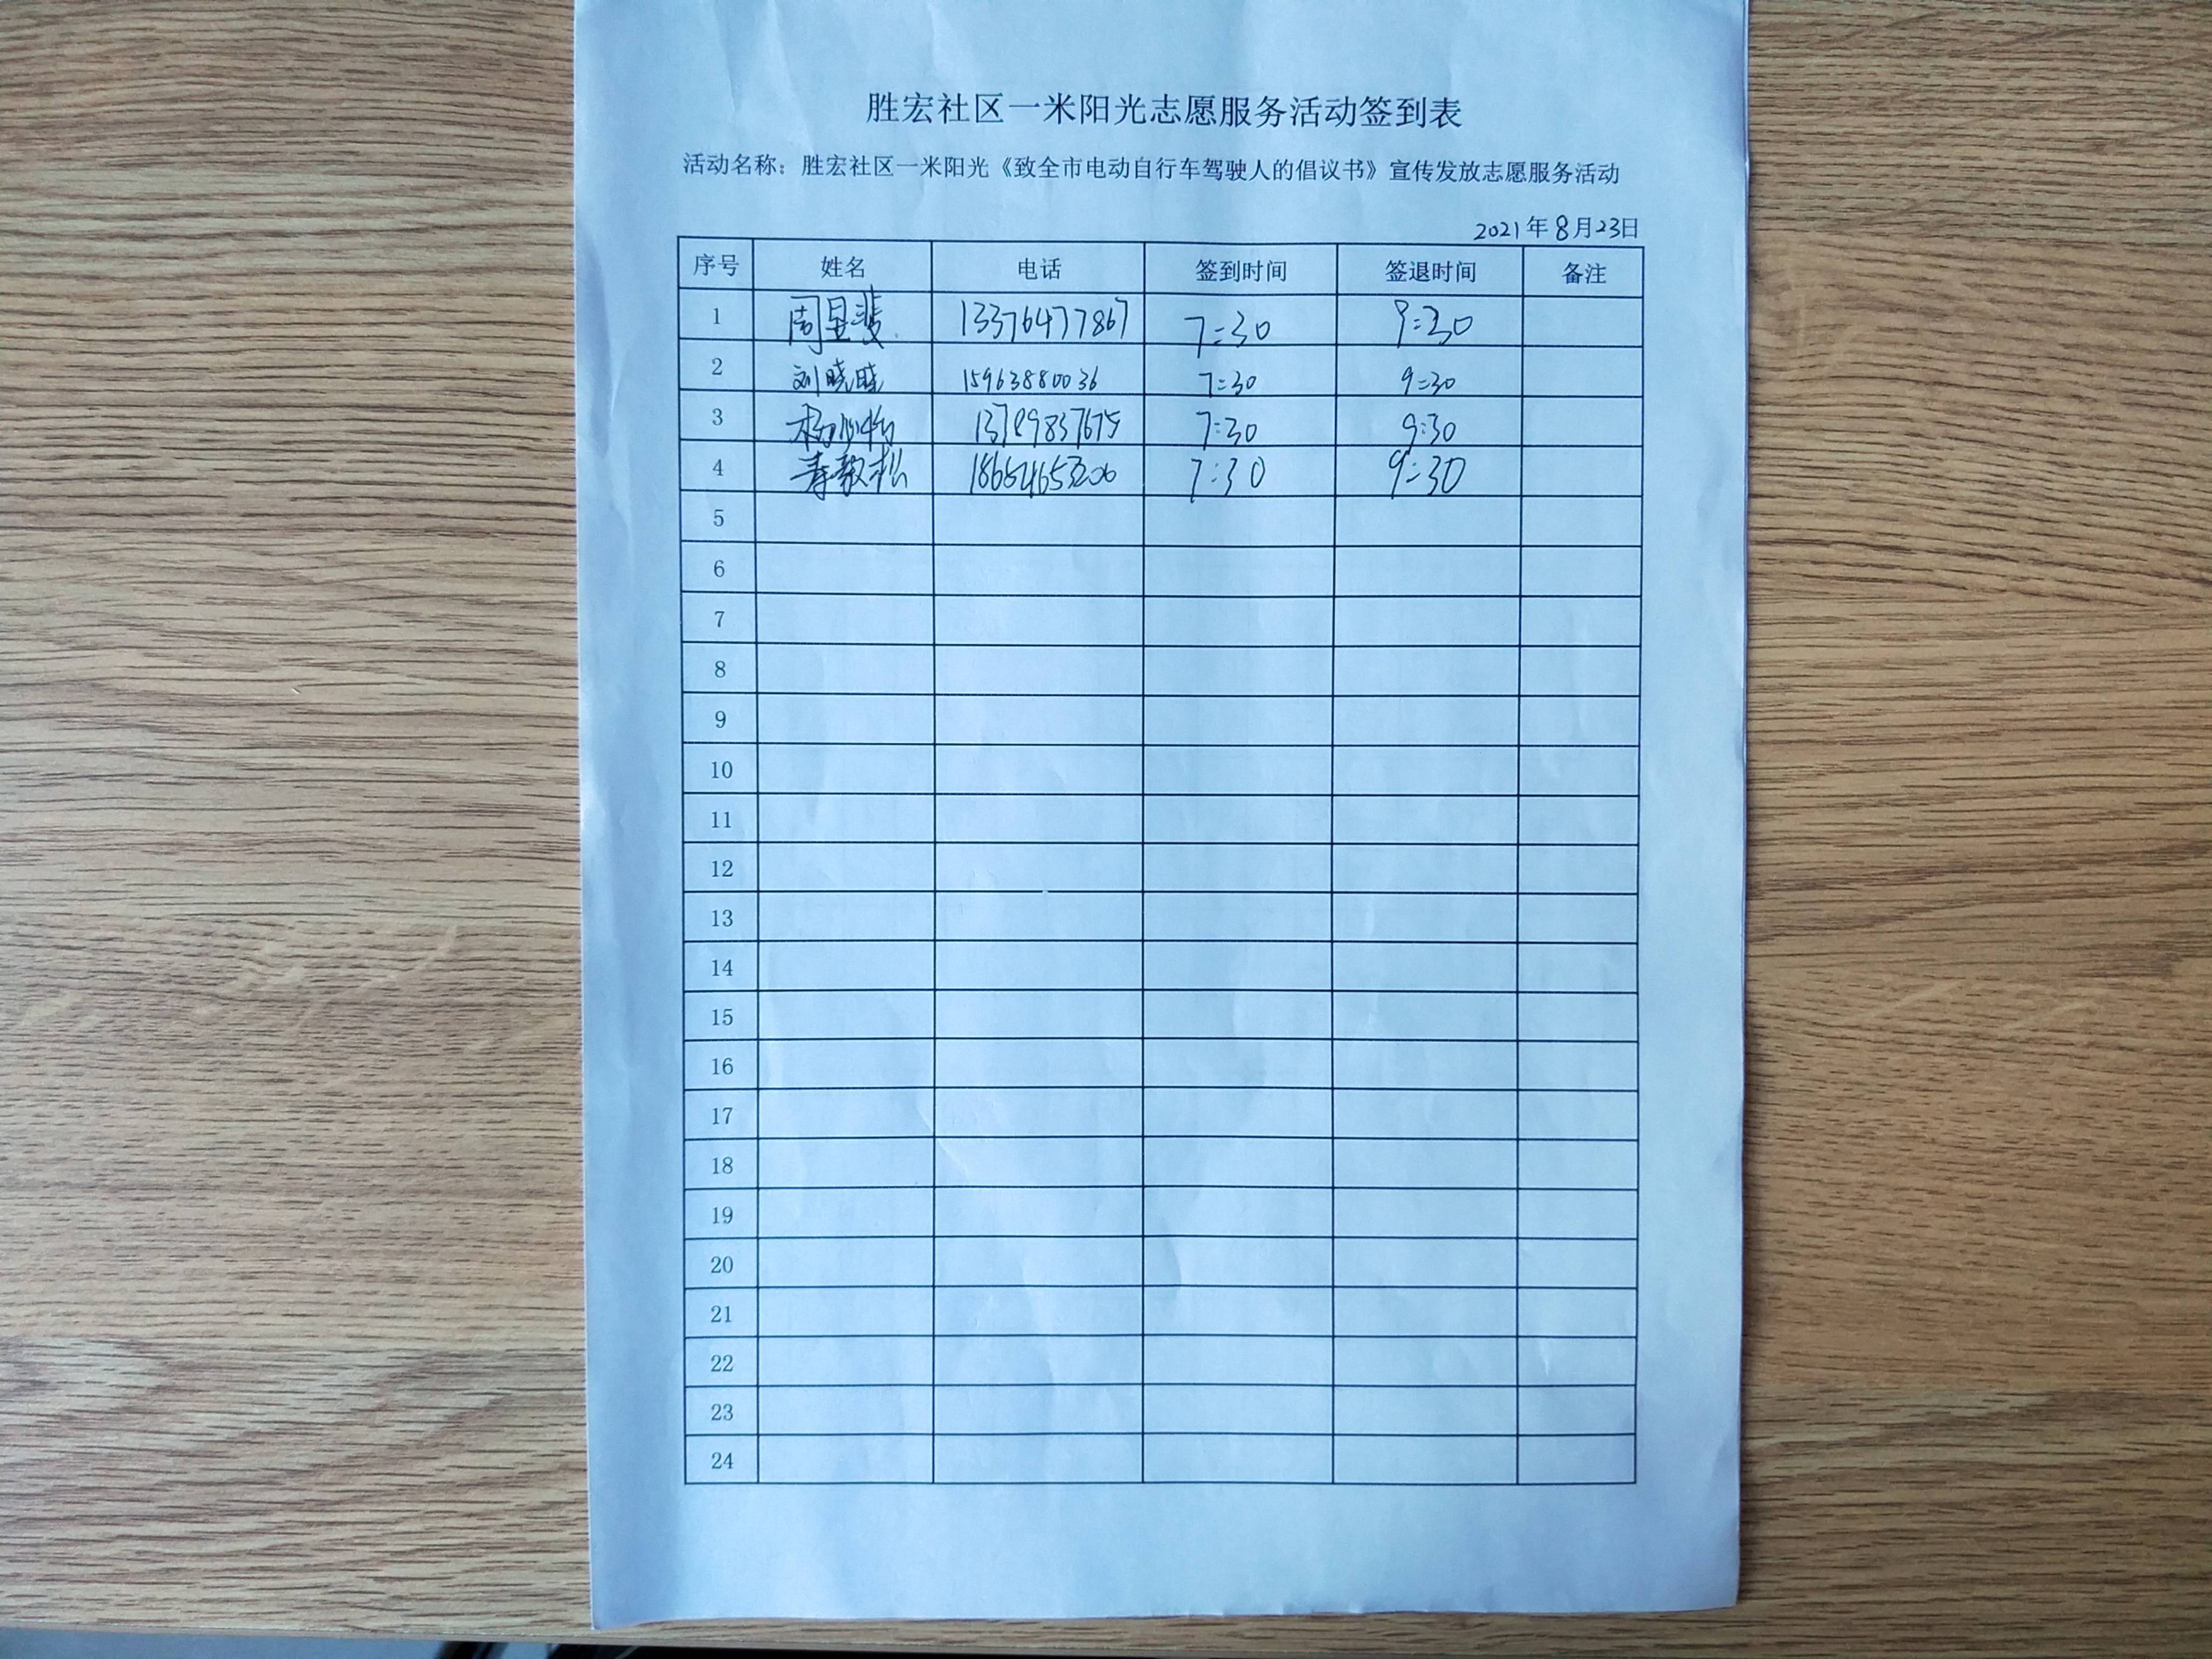 胜宏社区一米阳光志愿服务活动签到表
活动名称：胜宏社区一米阳光《致全市电动自行车驾驶人的倡议书》宣传发放志愿服务活动
2021年8月23日
序号 姓名 电话 签到时间 签退时间 备注
1 周 13376477867 7:30 9:30
2 刘晓晓 15963880036 7:30 9:30
3 杨 7:30 9:30
4 18654653206 7:30 9:30
5
6
7
8
9
10
11
12
13
14
15
16
17
18
19
20
21
22
23
24